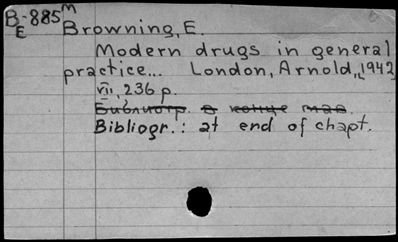 B-885 M
E
Browning, E.
Modern drugs in general
practice... London, Arnold, [1942]
VII, 236 p.
Библиогр. в конце глав.
Bibliogr.: at end of chapt.